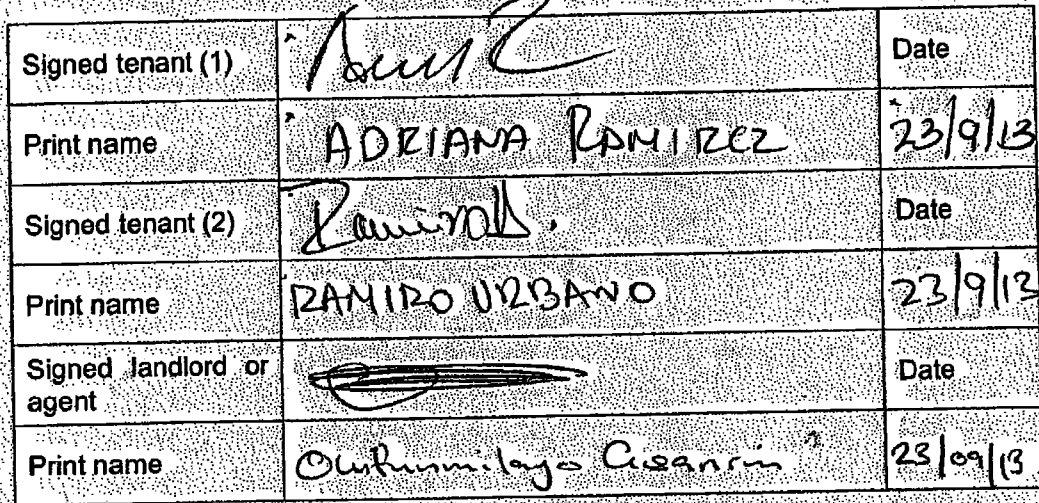 Signed tenant (1) Date
Print name ADRIANA RAMIREZ 23/9/13
Signed tenant (2) Date
Print name RAMIRO URBANO 23/9/13
Signed landlord or
agent Date
Print name 23/09/13